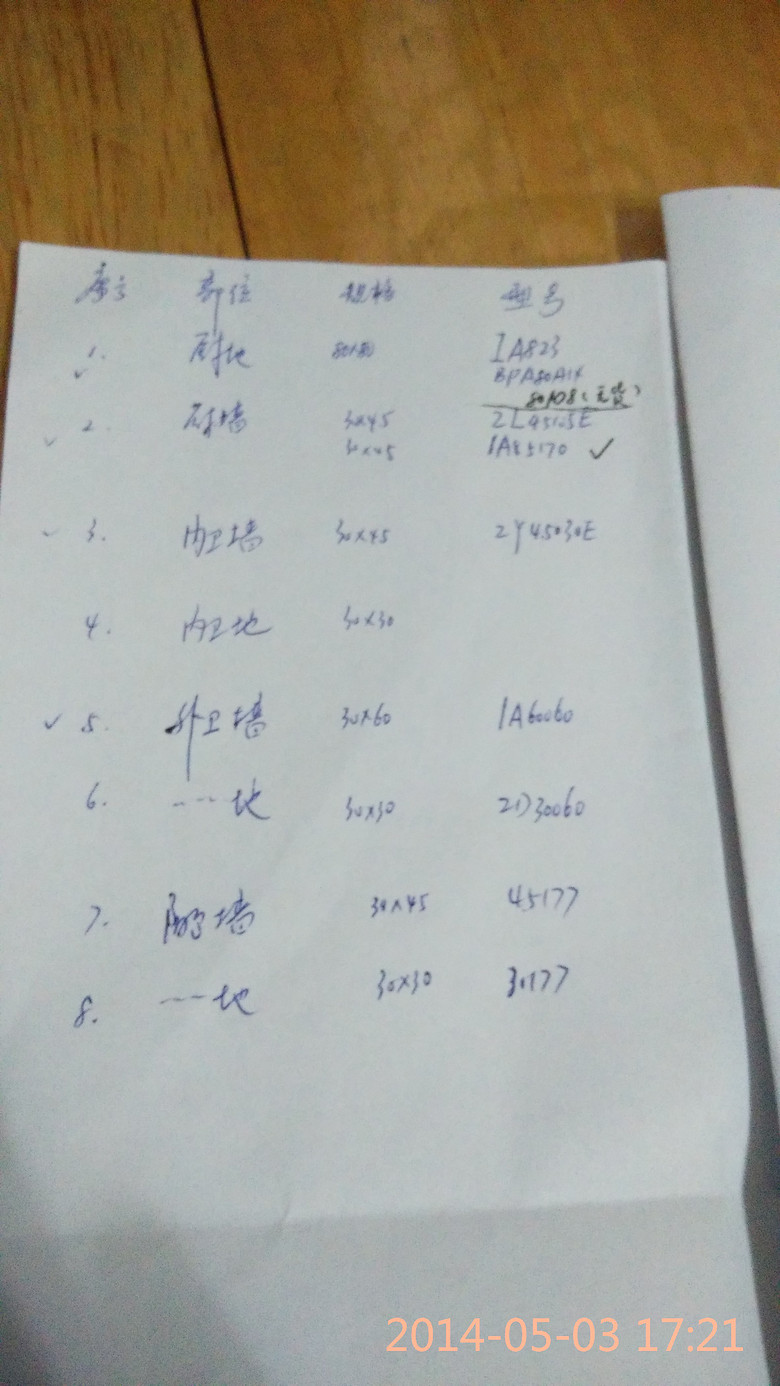 序号 部位 规格 型号
1. 厨地 80×80 IA823
BPA80A1X
80A08(无货)
2. 厨墙 30×45 2L45125E
30×45 1A85170 ✓
3. 内卫墙 30×45 2Y45030E
4. 内卫地 30×30
✓ 5. 外卫墙 30×60 1A60060
6. 一一地 30×30 2D30060
7. 墙 30×45 45177
8. 一一地 30×30 30177
2014-05-03 17:21